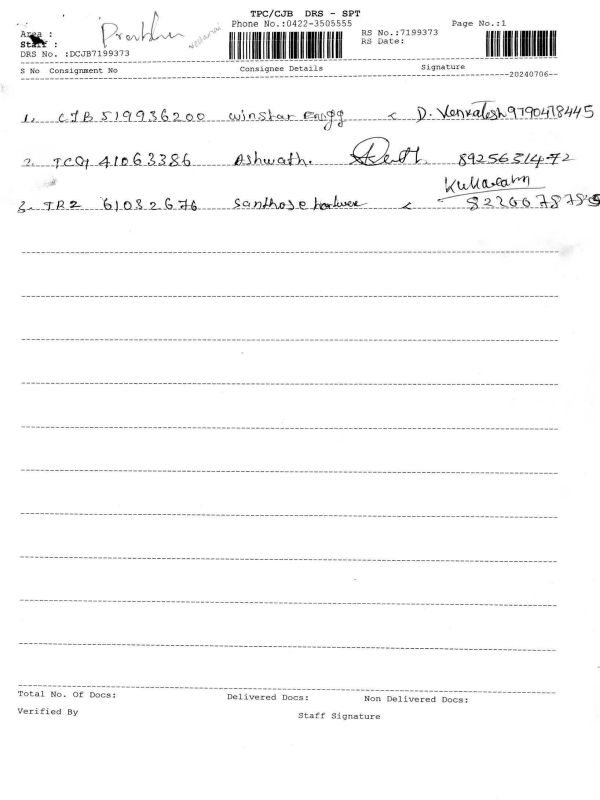 TPC/CJB DRS - SPT
Phone No.:0422-3505555 Page No.:1
Area : Prabhu
RS No.:7199373
Staff :
RS Date:
DRS No. :DCJB7199373
S No Consignment No Consignee Details Signature
20240706
1. CJB 519936200 Winstar Engg D. Venkatesh 9790478445
2. TCQ1 41063386 Ashwath. 8925631472
3. TRZ 61032676 Santhose hardware
Total No. Of Docs: Delivered Docs: Non Delivered Docs:
Verified By Staff Signature